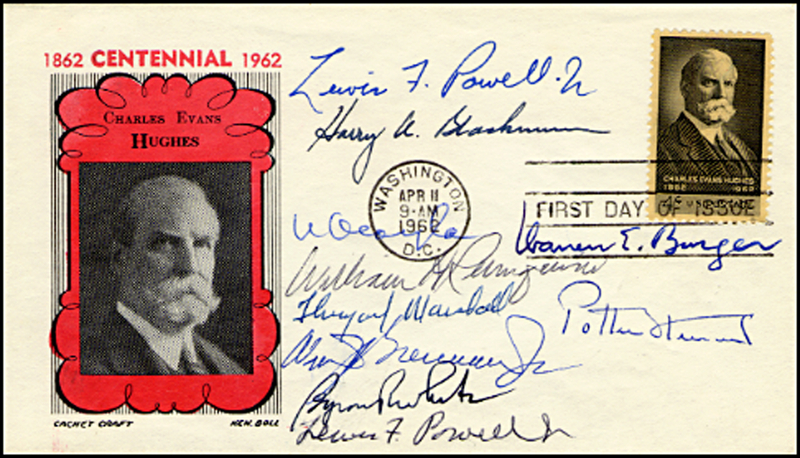 1862 CENTENNIAL 1962
CHARLES EVANS
HUGHES
CACHET CRAFT
KEN. BOLL
Lewis F. Powell Jr
Harry A. Blackmun
WASHINGTON
APR 11
9-AM
1962
D.C.
FIRST DAY OF ISSUE
CHARLES EVANS HUGHES
1862
4¢
Warren E. Burger
William H Rehnquist
Thurgood Marshall
Potter Stewart
Wm J Brennan Jr
Byron R White
Lewis F Powell Jr